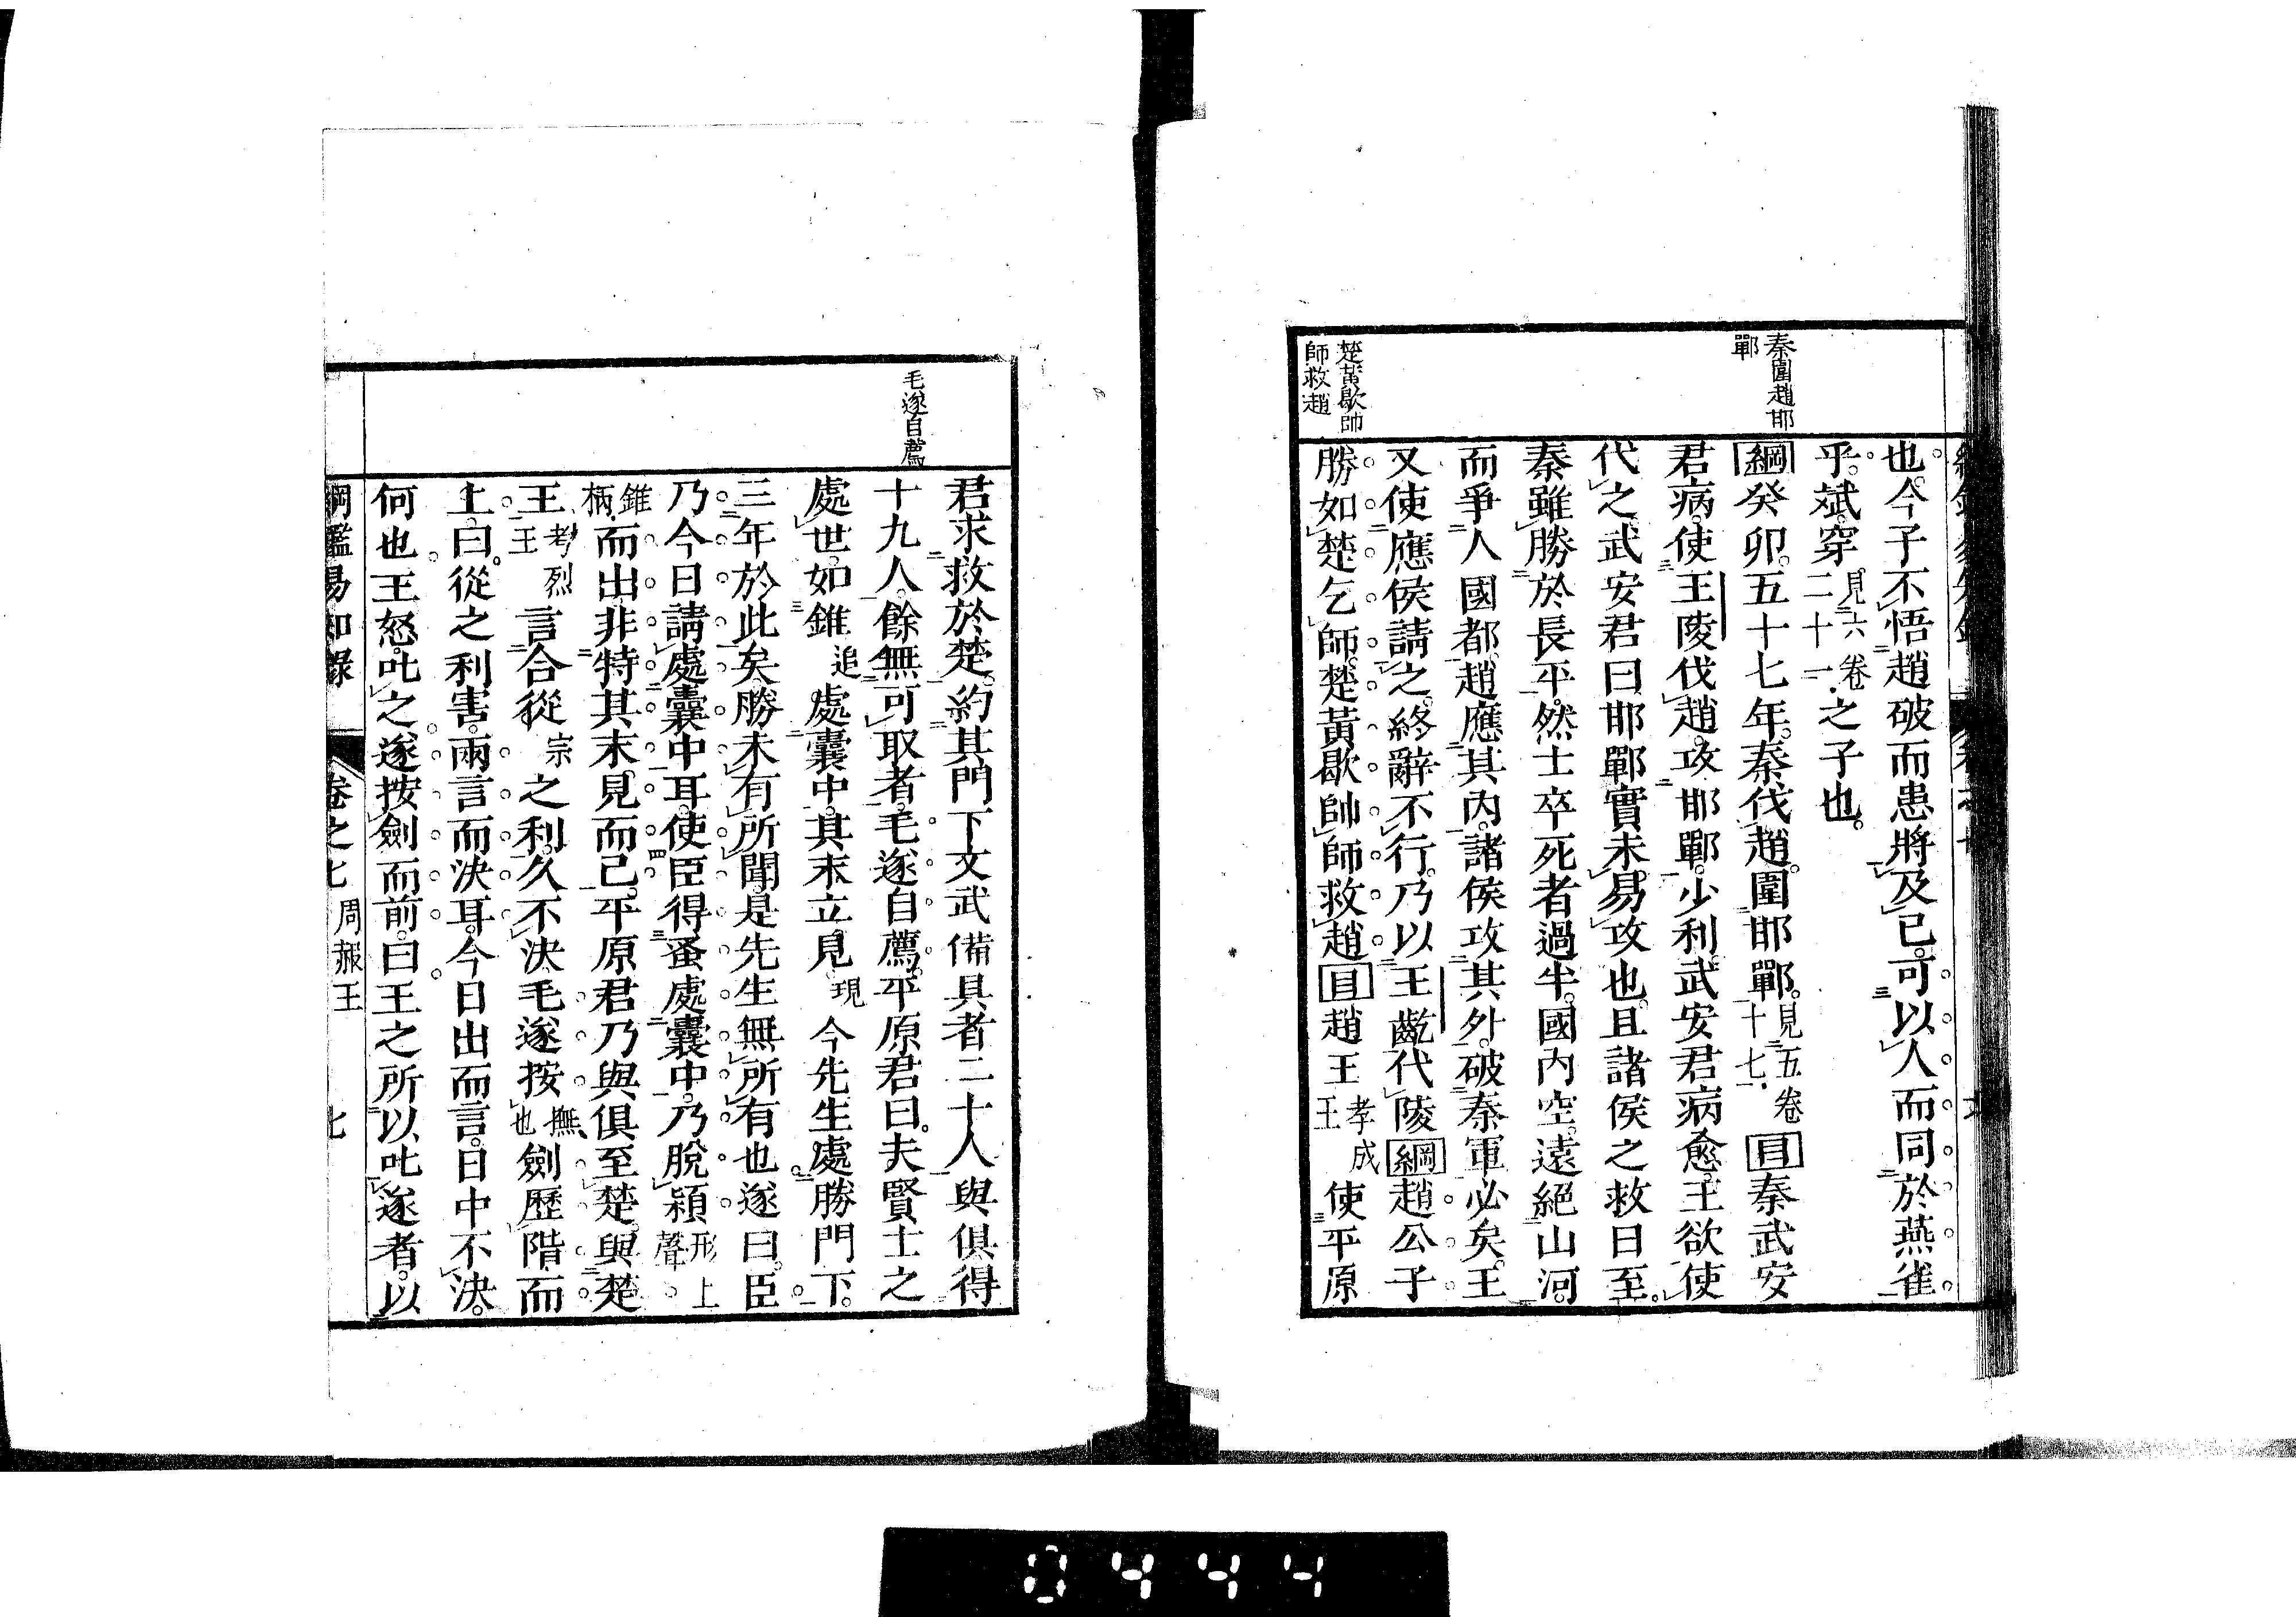 秦圍趙邯
鄲
楚黃歇帥
師救趙
也。今子不悟趙破而患將及已。可以人而同於燕雀
乎。斌。穿。見六卷二十一之子也。
綱癸卯。五十七年。秦伐趙。圍邯鄲。見五卷十七目秦武安
君病。使王陵伐趙。攻邯鄲。少利。武安君病愈。王欲使
代之。武安君曰邯鄲實未易攻也。且諸侯之救日至。
秦雖勝於長平。然士卒死者過半。國內空。遠絕山河。
而爭人國都。趙應其內。諸侯攻其外。破秦軍必矣。王
又使應侯請之。終辭不行。乃以王齕代陵綱趙公子
勝如楚乞師。楚黃歇帥師救趙目趙王孝成王使平原
毛遂自薦
君求救於楚。約其門下文武備具者二十人與俱得
十九人。餘無可取者。毛遂自薦。平原君曰。夫賢士之
處世。如錐追處囊中。其末立見現今先生處勝門下。
三年於此矣。勝未有所聞。是先生無所有也遂曰。臣
乃今日請處囊中耳。使臣得蚤處囊中。乃脫穎形上聲
錐柄而出。非特其末見而已。平原君乃與俱至楚。與楚
王考烈王言合從宗之利。久不決。毛遂按撫也劍歷階而
上。曰。從之利害。兩言而決耳。今日出而言。日中不決。
何也王怒。叱之。遂按劍而前。曰。王之所以叱遂者。以
綱鑑易知錄 卷之七 周赧王 七
0444